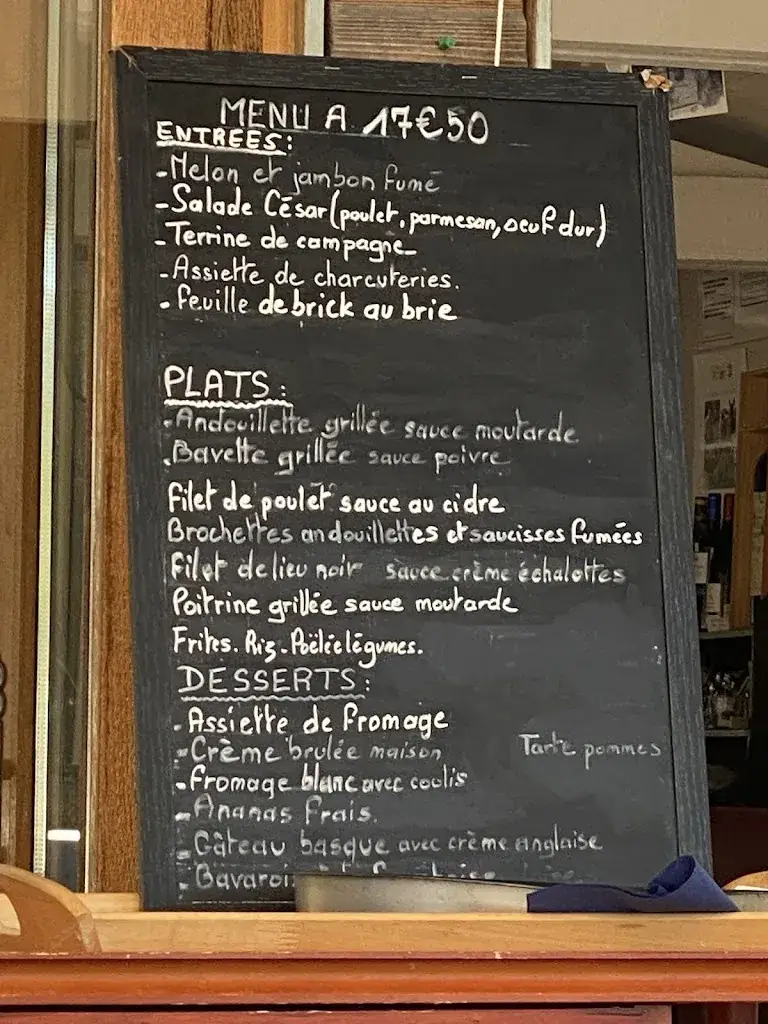 MENU A 17€50
ENTREES:
-Melon et jambon fumé
-Salade César (poulet, parmesan, oeuf dur)
-Terrine de campagne
-Assiette de charcuteries.
-feuille de brick au brie
PLATS:
-Andouillette grillée sauce moutarde
-Bavette grillée sauce poivre
Filet de poulet sauce au cidre
Brochettes andouillettes et saucisses fumées
Filet de lieu noir sauce crème échalottes
Poitrine grillée sauce moutarde
Frites. Riz. Poëlée légumes.
DESSERTS:
-Assiette de fromage
-Crème brulée maison Tarte pommes
-fromage blanc avec coulis
-Ananas frais.
-Gâteau basque avec crème anglaise
-Bavaroi